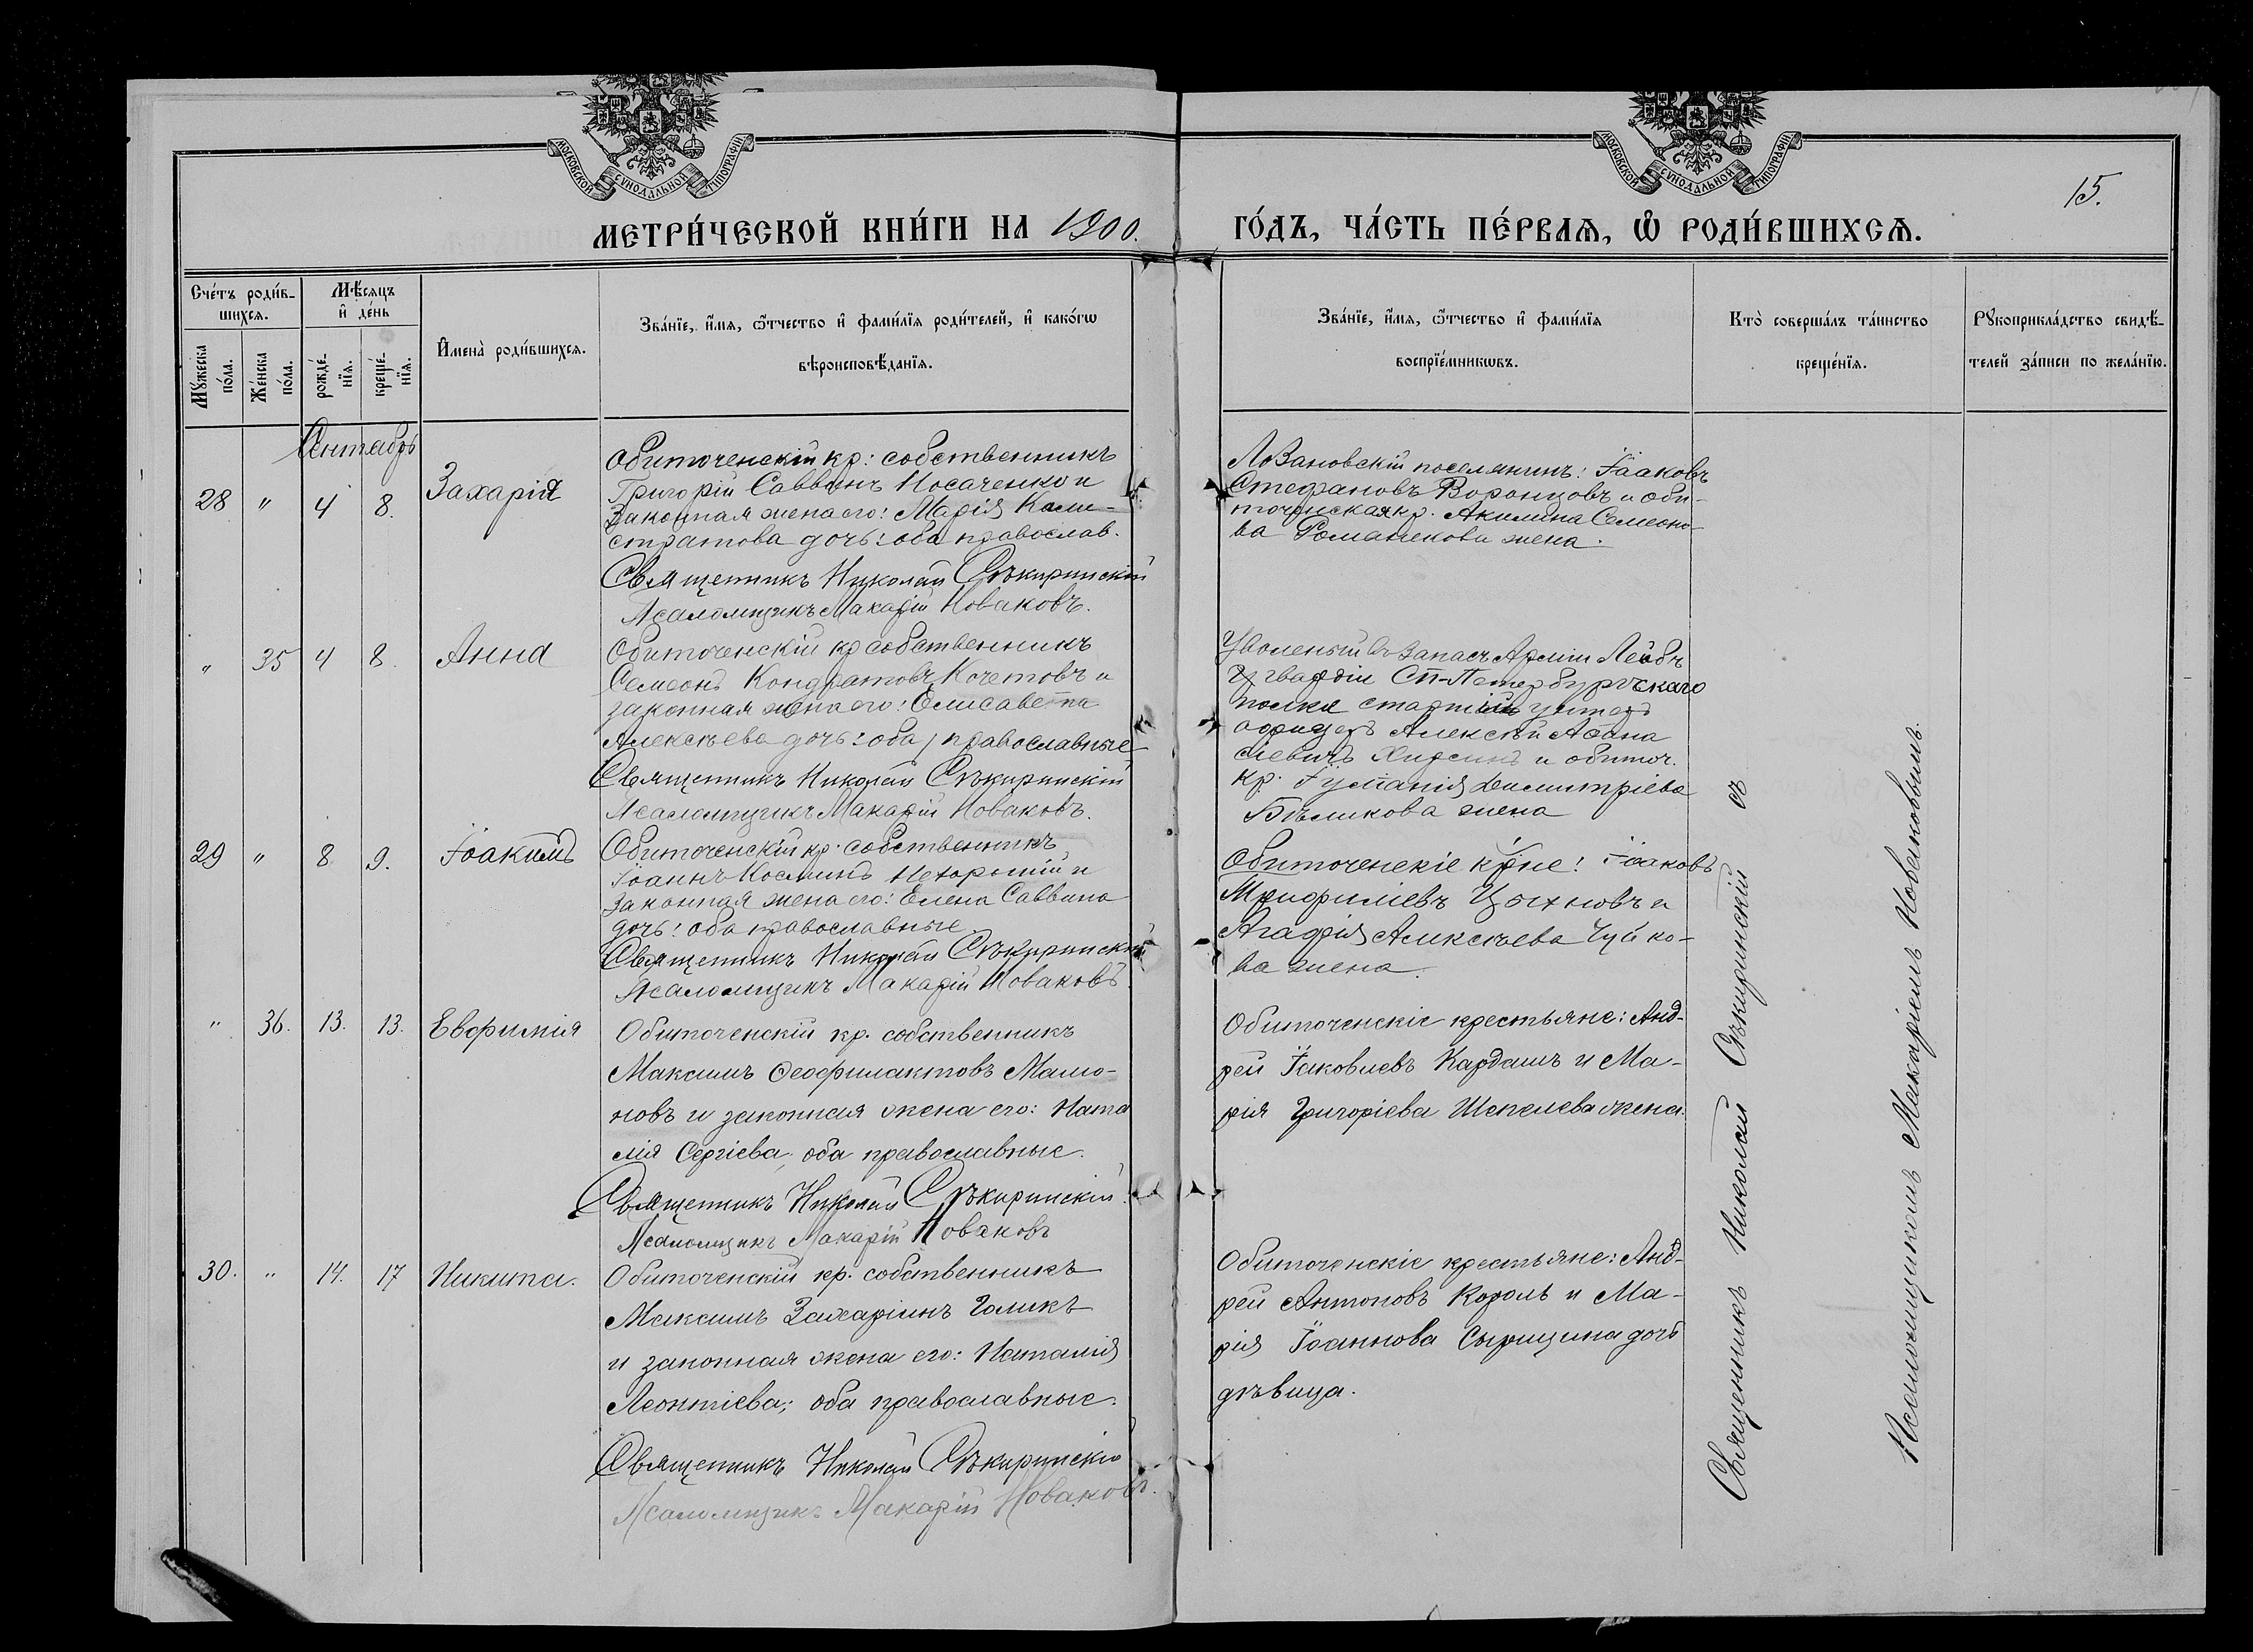 МОСКОВСКОЙ СѴНОДАЛЬНОЙ ТИПОГРАФІИ
МОСКОВСКОЙ СѴНОДАЛЬНОЙ ТИПОГРАФІИ
15.
МЕТРИ́ЧЕСКОЙ КНИ́ГИ НА 1900.
ГО́ДЪ, ЧА́СТЬ ПЕ́РВАѦ, Ѡ҆ РОДИ́ВШИХСѦ.
Сче́тъ роди́в-
шихсѧ.
Мѣ́сѧцъ
и҆ де́нь
Мꙋ́жеска
по́ла.
Же́нска
по́ла.
рожде́-
нїѧ.
креще́-
нїѧ.
И҆мена̀ роди́вшихсѧ.
Зва́нїе, и҆́мѧ, ѻ҆́тчество и҆ фами́лїѧ роди́телей, и҆ како́гѡ
вѣроисповѣ́данїѧ.
Зва́нїе, и҆́мѧ, ѻ҆́тчество и҆ фами́лїѧ
воспрїе́мникѡвъ.
Кто̀ соверша́лъ та́инство
креще́нїѧ.
Рꙋкоприкла́дство свидѣ́-
телей за́писи по жела́нїю.
Сентябрь
28 " 4 8. Захарія
Обиточенскій кр: собственникъ
Григорій Саввинъ Носаченко и
законная жена его: Марія Кали-
стратова дочь: оба православ.
Священникъ Николай Сѣкиринскій
Псаломщикъ Макарій Новаковъ.
поселянинъ: Іаковъ
Стефановъ Воронцовъ и оби-
точенская кр. Акилина Семено-
ва Романекова жена.
" 35 4 8. Анна
Обиточенскій кр собственникъ
Семеонъ Кондратовъ Кочетовъ и
законная жена его: Елисавета
Алексѣева дочь: оба православные
Священникъ Николай Сѣкиринскій
Псаломщикъ Макарій Новаковъ.
Уволеный въ запасъ Арміи Лейбъ
гвардіи СП-Петербургскаго
полка старшій унтеръ
офицеръ Алексѣй Афана
сіевичъ и обиточ.
кр. Димитріева
Бѣликова жена
29 " 8 9. Іоакимъ
Обиточенскій кр. собственникъ
Іоаннъ Косминъ Нехорошій и
законная жена его: Елена Саввина
дочь: оба православные
Священникъ Николай Сѣкиринскій
Псаломщикъ Макарій Новаковъ
Обиточенскіе кр̃не: Іаковъ
Трифиліевъ и
Агафія Алексѣева Чуйко-
ва жена.
" 36. 13. 13. Евфимія
Обиточенскій кр. собственникъ
Максимъ Феофилактовъ Мамо-
новъ и законная жена его: Ната
лія Сергіева; оба православные.
Священникъ Николай Сѣкиринскій.
Псаломщикъ Макарій Новаковъ
Обиточенскіе крестьяне: Анд-
рей Іаковлевъ Кардашъ и Ма-
рія Григоріева Шепелева жена.
30. " 14. 17 Никита.
Обиточенскій кр. собственникъ
Максимъ Захаріинъ Голикъ
и законная жена его: Наталія
Леонтіева; оба православные.
Священникъ Николай Сѣкиринскій
Псаломщикъ Макарій Новаковъ.
Обиточенскіе крестьяне: Анд-
рей Антоновъ Король и Ма-
рія Іоаннова Сырицина дочь
дѣвица.
Священникъ Николай Сѣкиринскій съ
Псаломщикомъ Макаріемъ Новаковымъ.